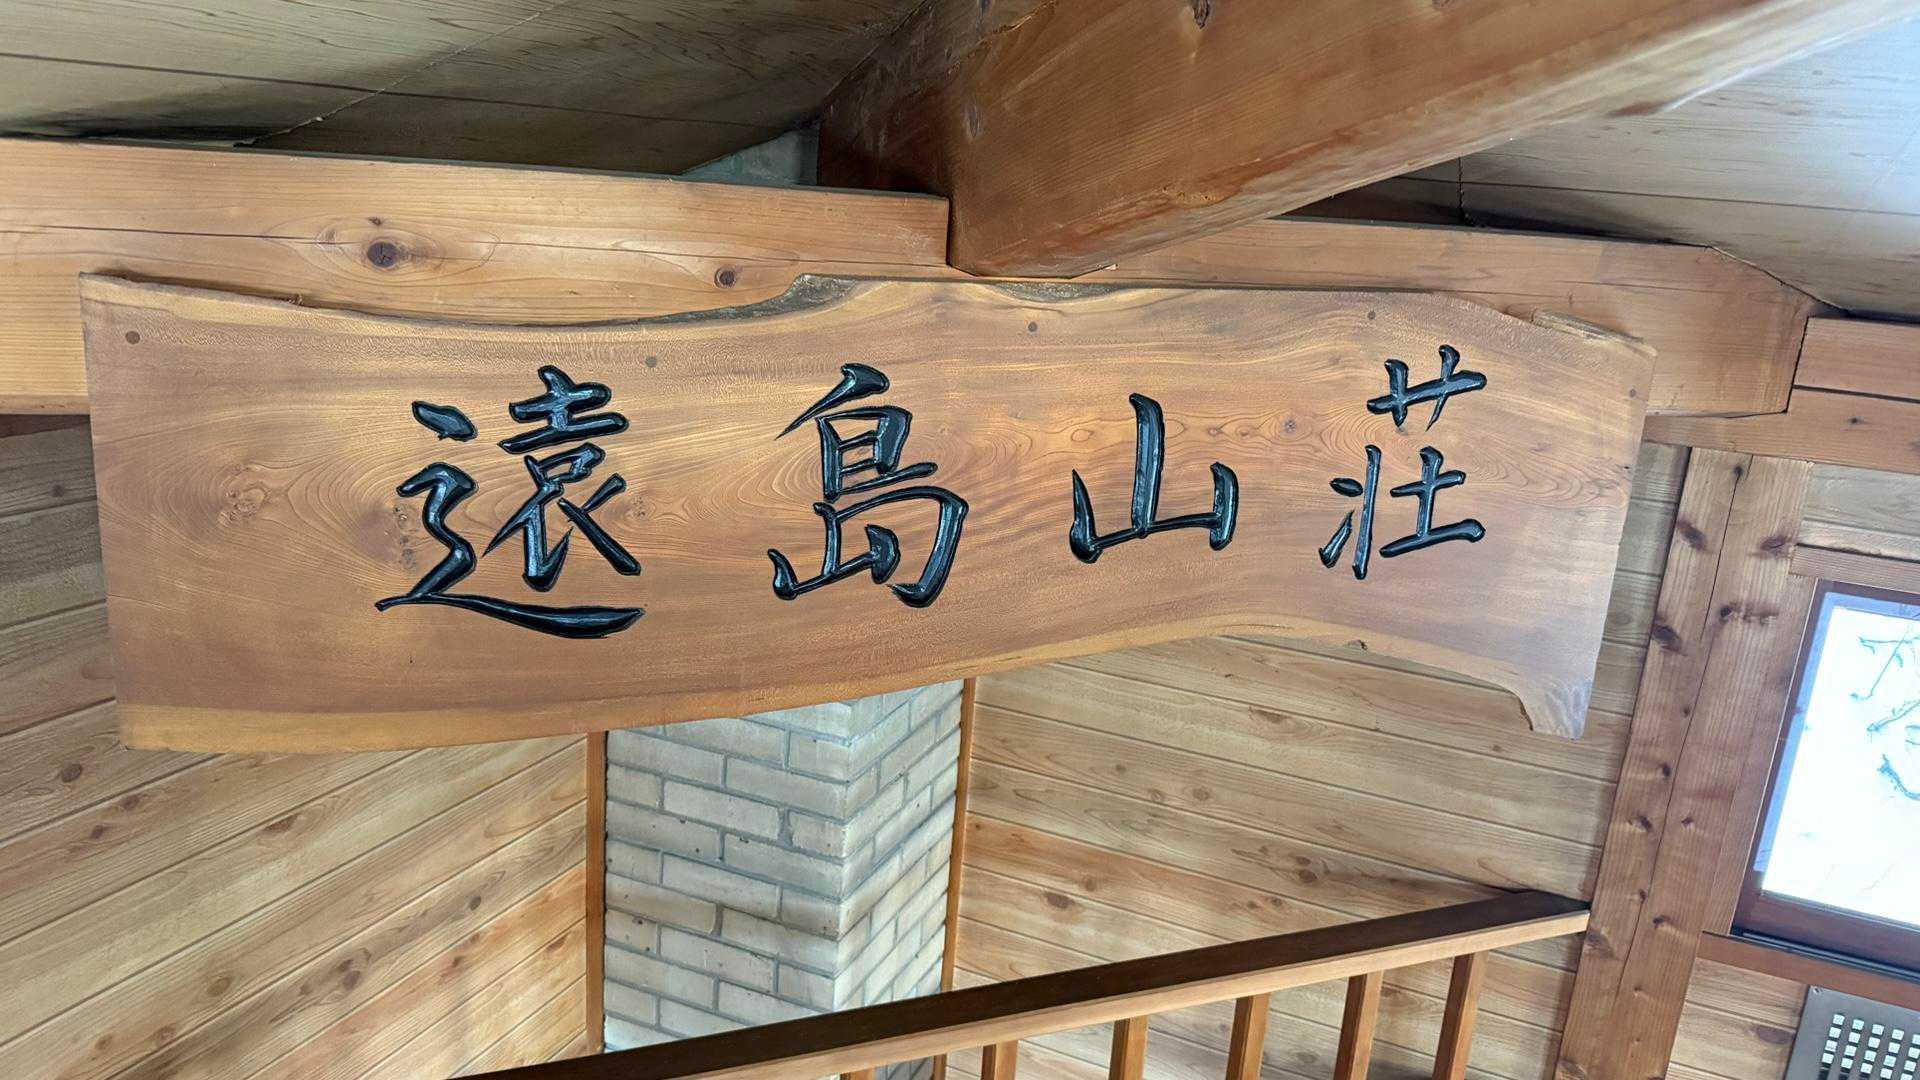 遠島山荘